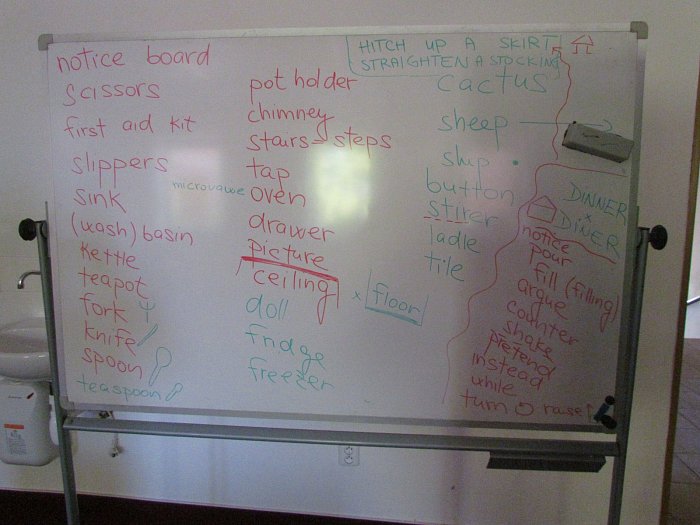 notice board
scissors
first aid kit
slippers
sink
(wash) basin
kettle
teapot
fork
knife
spoon
teaspoon
pot holder
chimney
stairs - steps
tap
microvawe oven
drawer
picture
ceiling x floor
doll
fridge
freezer
HITCH UP A SKIRT
STRAIGHTEN A STOCKING
cactus
sheep
ship
button
stirer
ladle
tile
DINNER
x
DINER
notice
pour
fill (filling)
argue
counter
shake
pretend
instead
while
turn